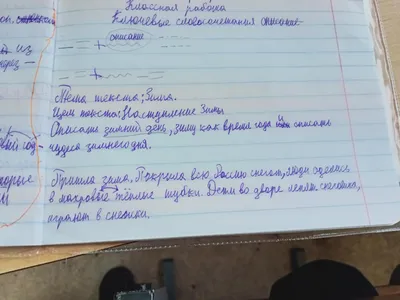 Классная работа
Ключевые словосочетания
описание
из
Тема текста: Зима.
Цель текста: Наступление Зимы
Описать зимний день, зиму как время года и описать
чудеса зимнего дня.
Пришла зима. Покрыла всю Россию снегом, люди оделись
в махровые тёплые шубки. Дети во дворе лепят снеговика,
играют в снежки.